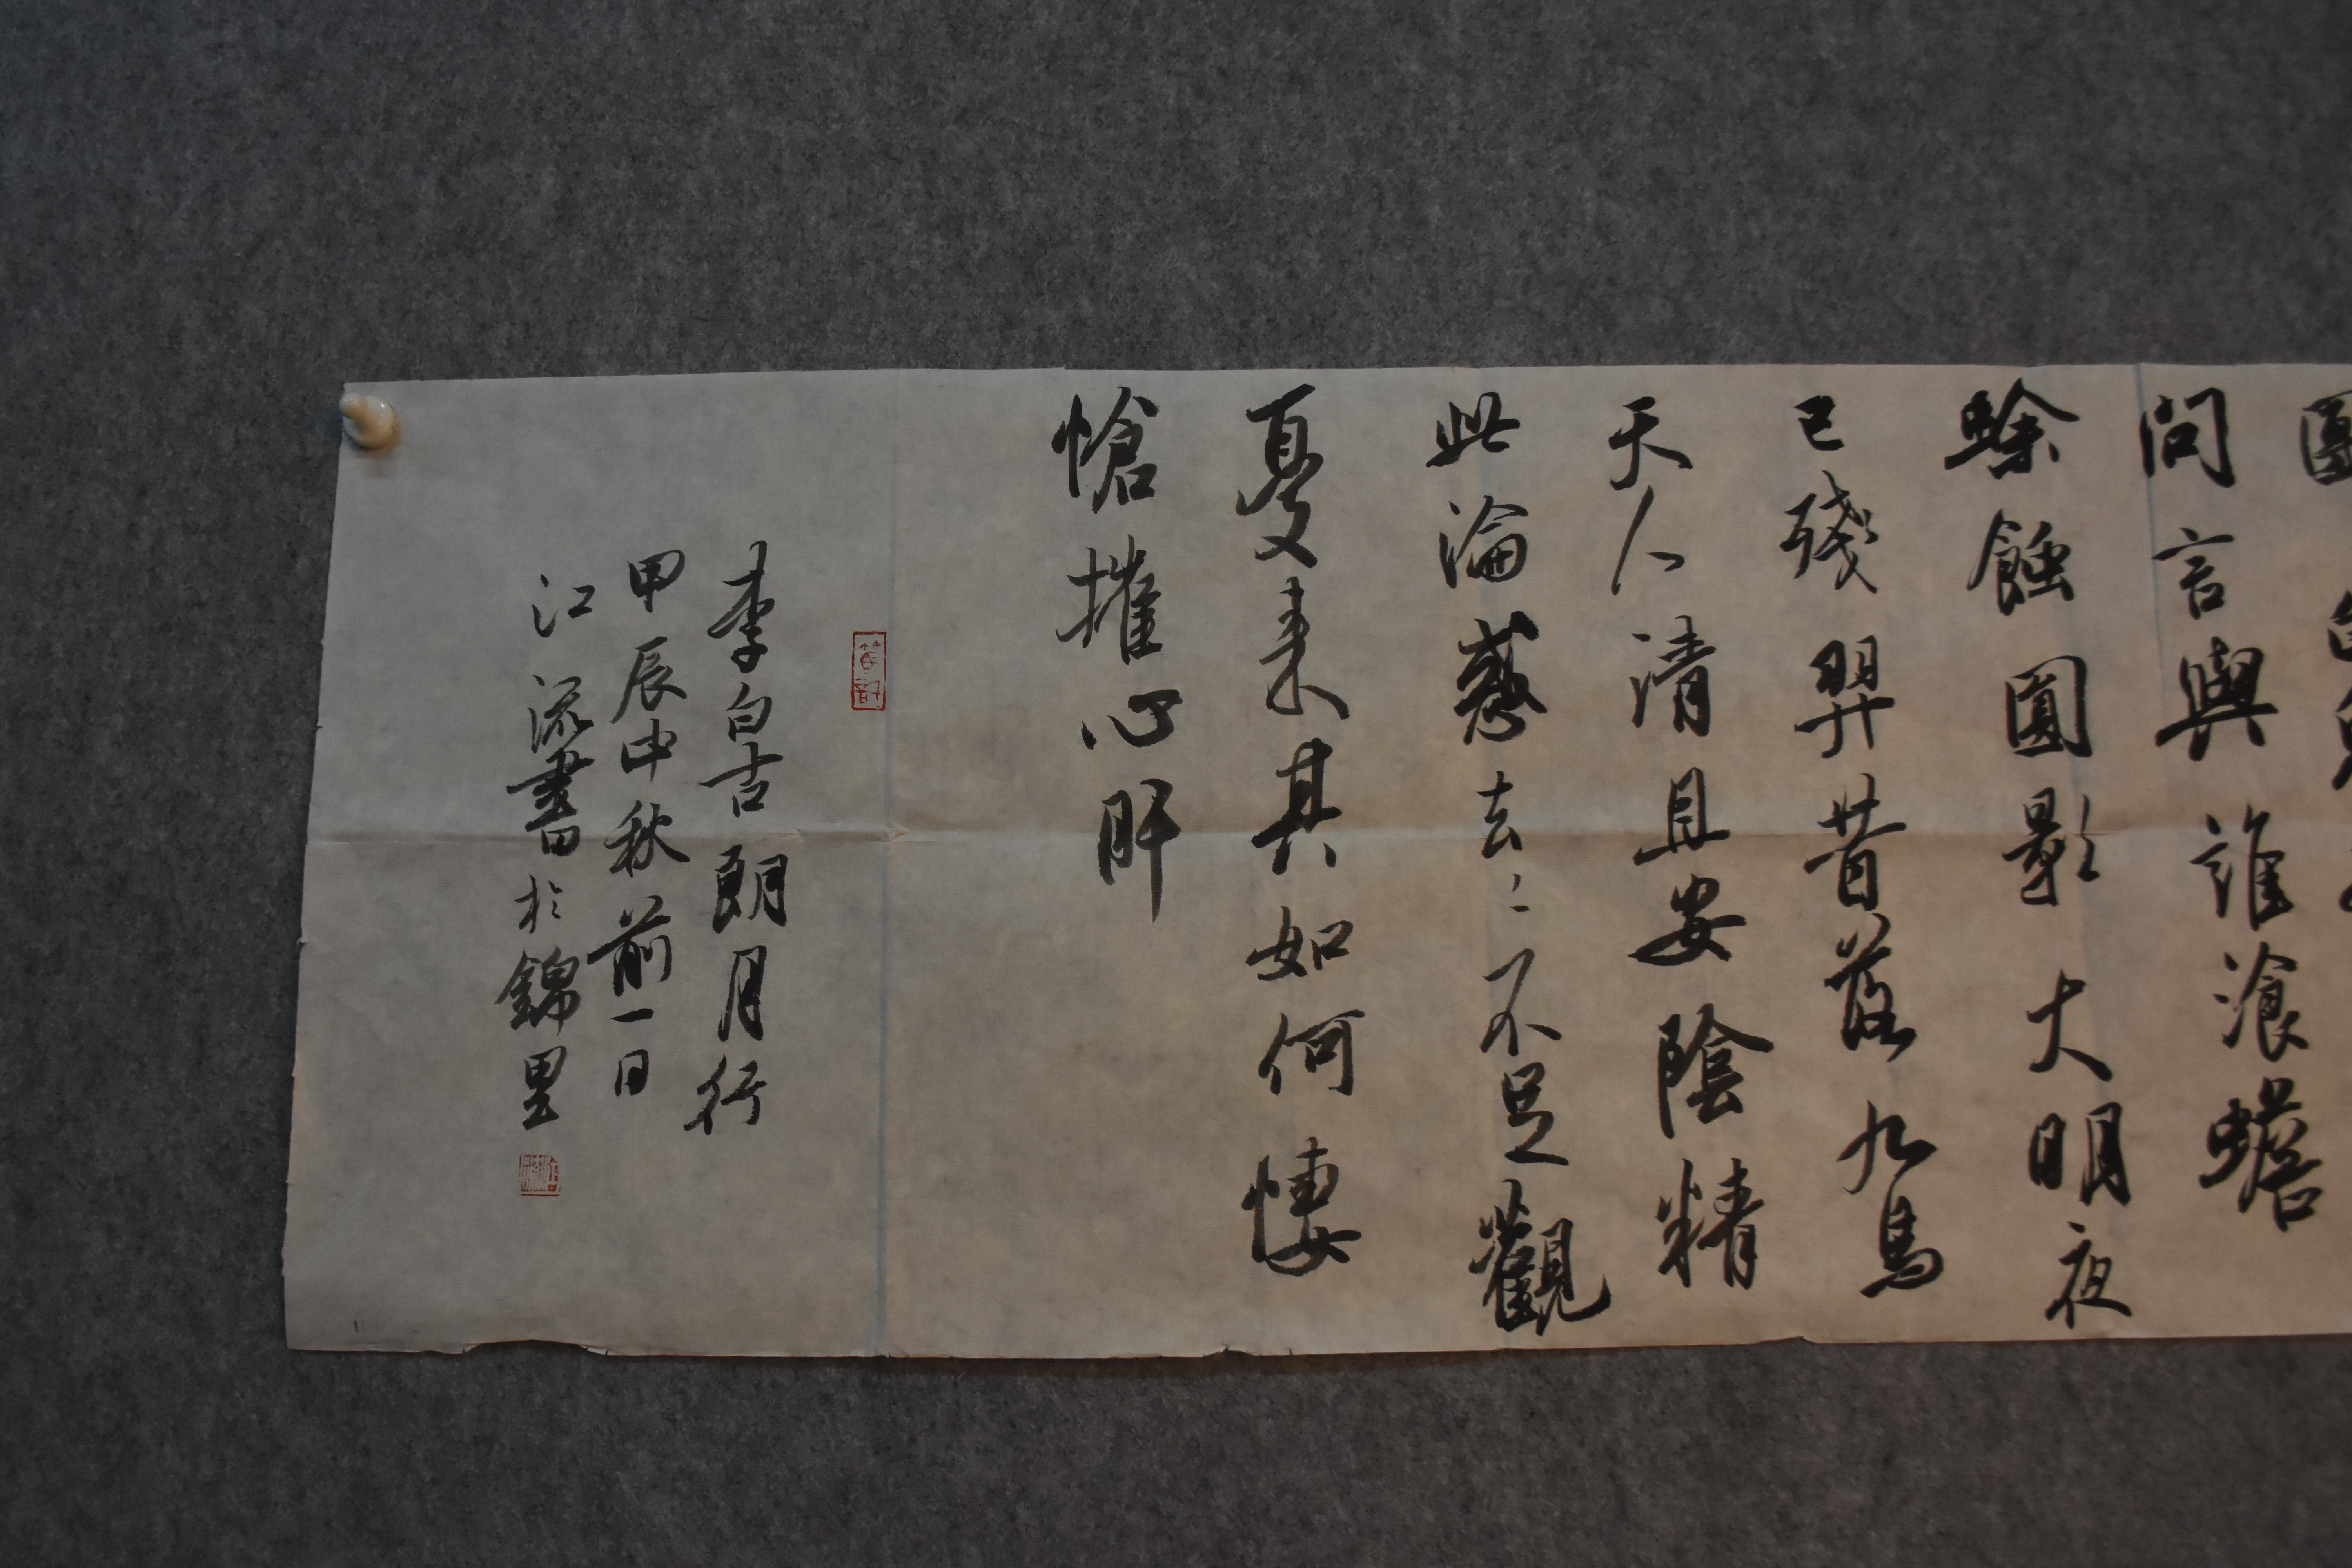 團
問言與誰湌蟾
蜍蝕圓影大明夜
已殘羿昔落九烏
天人清且安陰精
此淪惑去〻不足觀
憂来其如何悽
愴摧心肝
李白古朗月行
甲辰中秋前一日
江流書於錦里